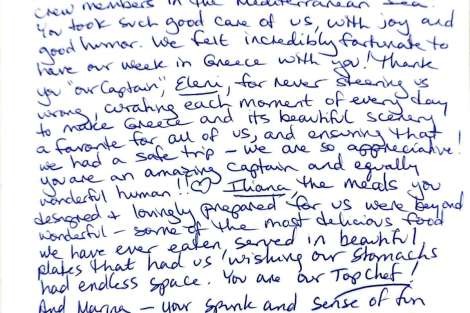 crew members in the Mediterranean Sea.
You took such good care of us, with joy and
good humor. We felt incredibly fortunate to
have our week in Greece with you! Thank
you "our Captain," Eleni, for never steering us
wrong, curating each moment of every day
to make Greece and its beautiful scenery
a favorite for all of us, and ensuring that
we had a safe trip – we are so appreciative!
you are an amazing captain and equally
wonderful human!! ♡ Iliana the meals you
designed + lovingly prepared for us were beyond
wonderful – some of the most delicious food
we have ever eaten, served in beautiful
plates that had us wishing our stomachs
had endless space. You are our Top Chef!
And Marina – your spunk and sense of fun